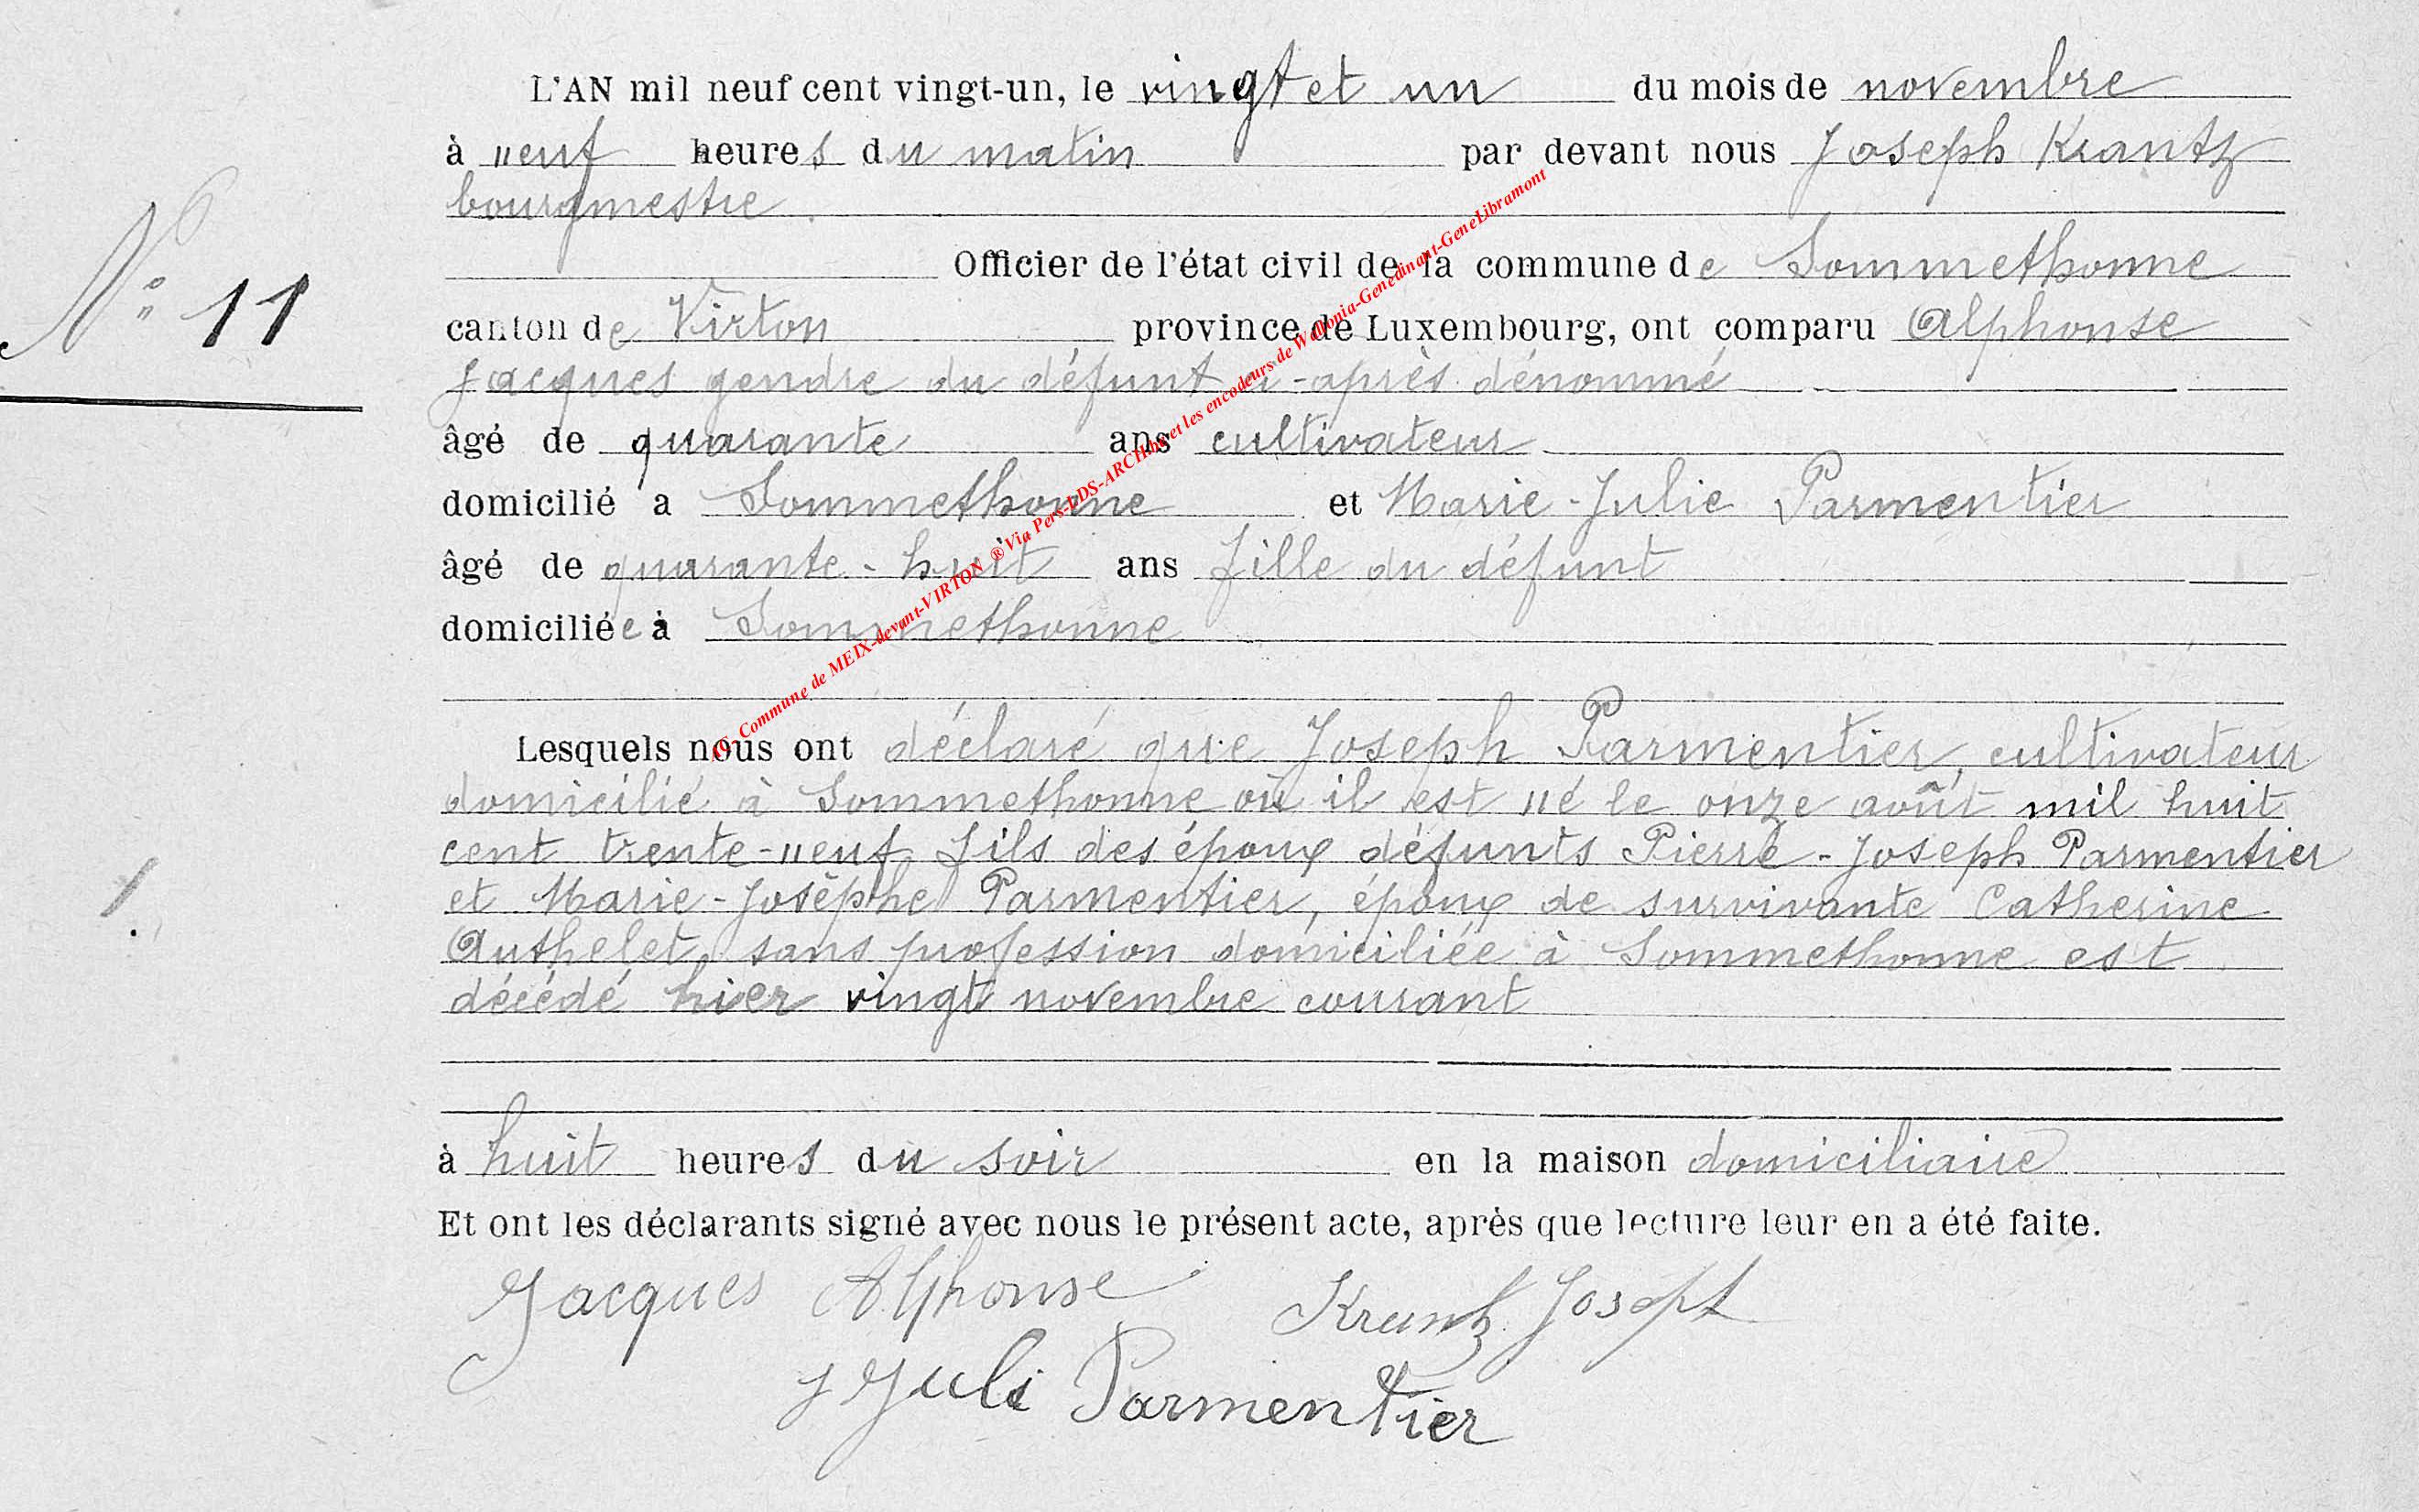 L'AN mil neuf cent vingt-un, le vingt et un du mois de novembre
à neuf heures du matin par devant nous Joseph Krantz
bourgmestre
Officier de l'état civil de la commune de Sommethonne
Nº 11
canton de Virton province de Luxembourg, ont comparu Alphonse
Jacques gendre du défunt ci-après dénommé
âgé de quarante ans cultivateur
domicilié a Sommethonne et Marie-Julie Parmentier
âgé de quarante-huit ans fille du défunt
domiciliée à Sommethonne
Lesquels nous ont déclaré que Joseph Parmentier, cultivateur
domicilié à Sommethonne où il est né le onze août mil huit
cent trente-neuf fils des époux défunts Pierre-Joseph Parmentier
et Marie-Josèphe Parmentier, époux de survivante Catherine
Authelet, sans profession domiciliée à Sommethonne est
décédé hier vingt novembre courant
à huit heures du soir en la maison domiciliaire
Et ont les déclarants signé avec nous le présent acte, après que lecture leur en a été faite.
Jacques Alphonse Krantz Joseph
J Juli Parmentier
Commune de MEIX-devant-VIRTON ® Via Pers-LDS-ARCH.be et les encodeurs de Wallonia-Genedinant-GeneLibramont